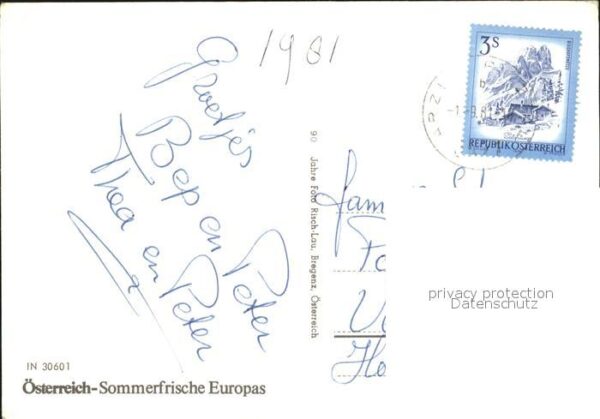 1981
Groetjes
Bep en Peter
Thea en Peter
3S
REPUBLIK ÖSTERREICH
90 Jahre Foto Risch-Lau, Bregenz, Österreich
Fam
privacy protection
Datenschutz
IN 30601
Österreich-Sommerfrische Europas